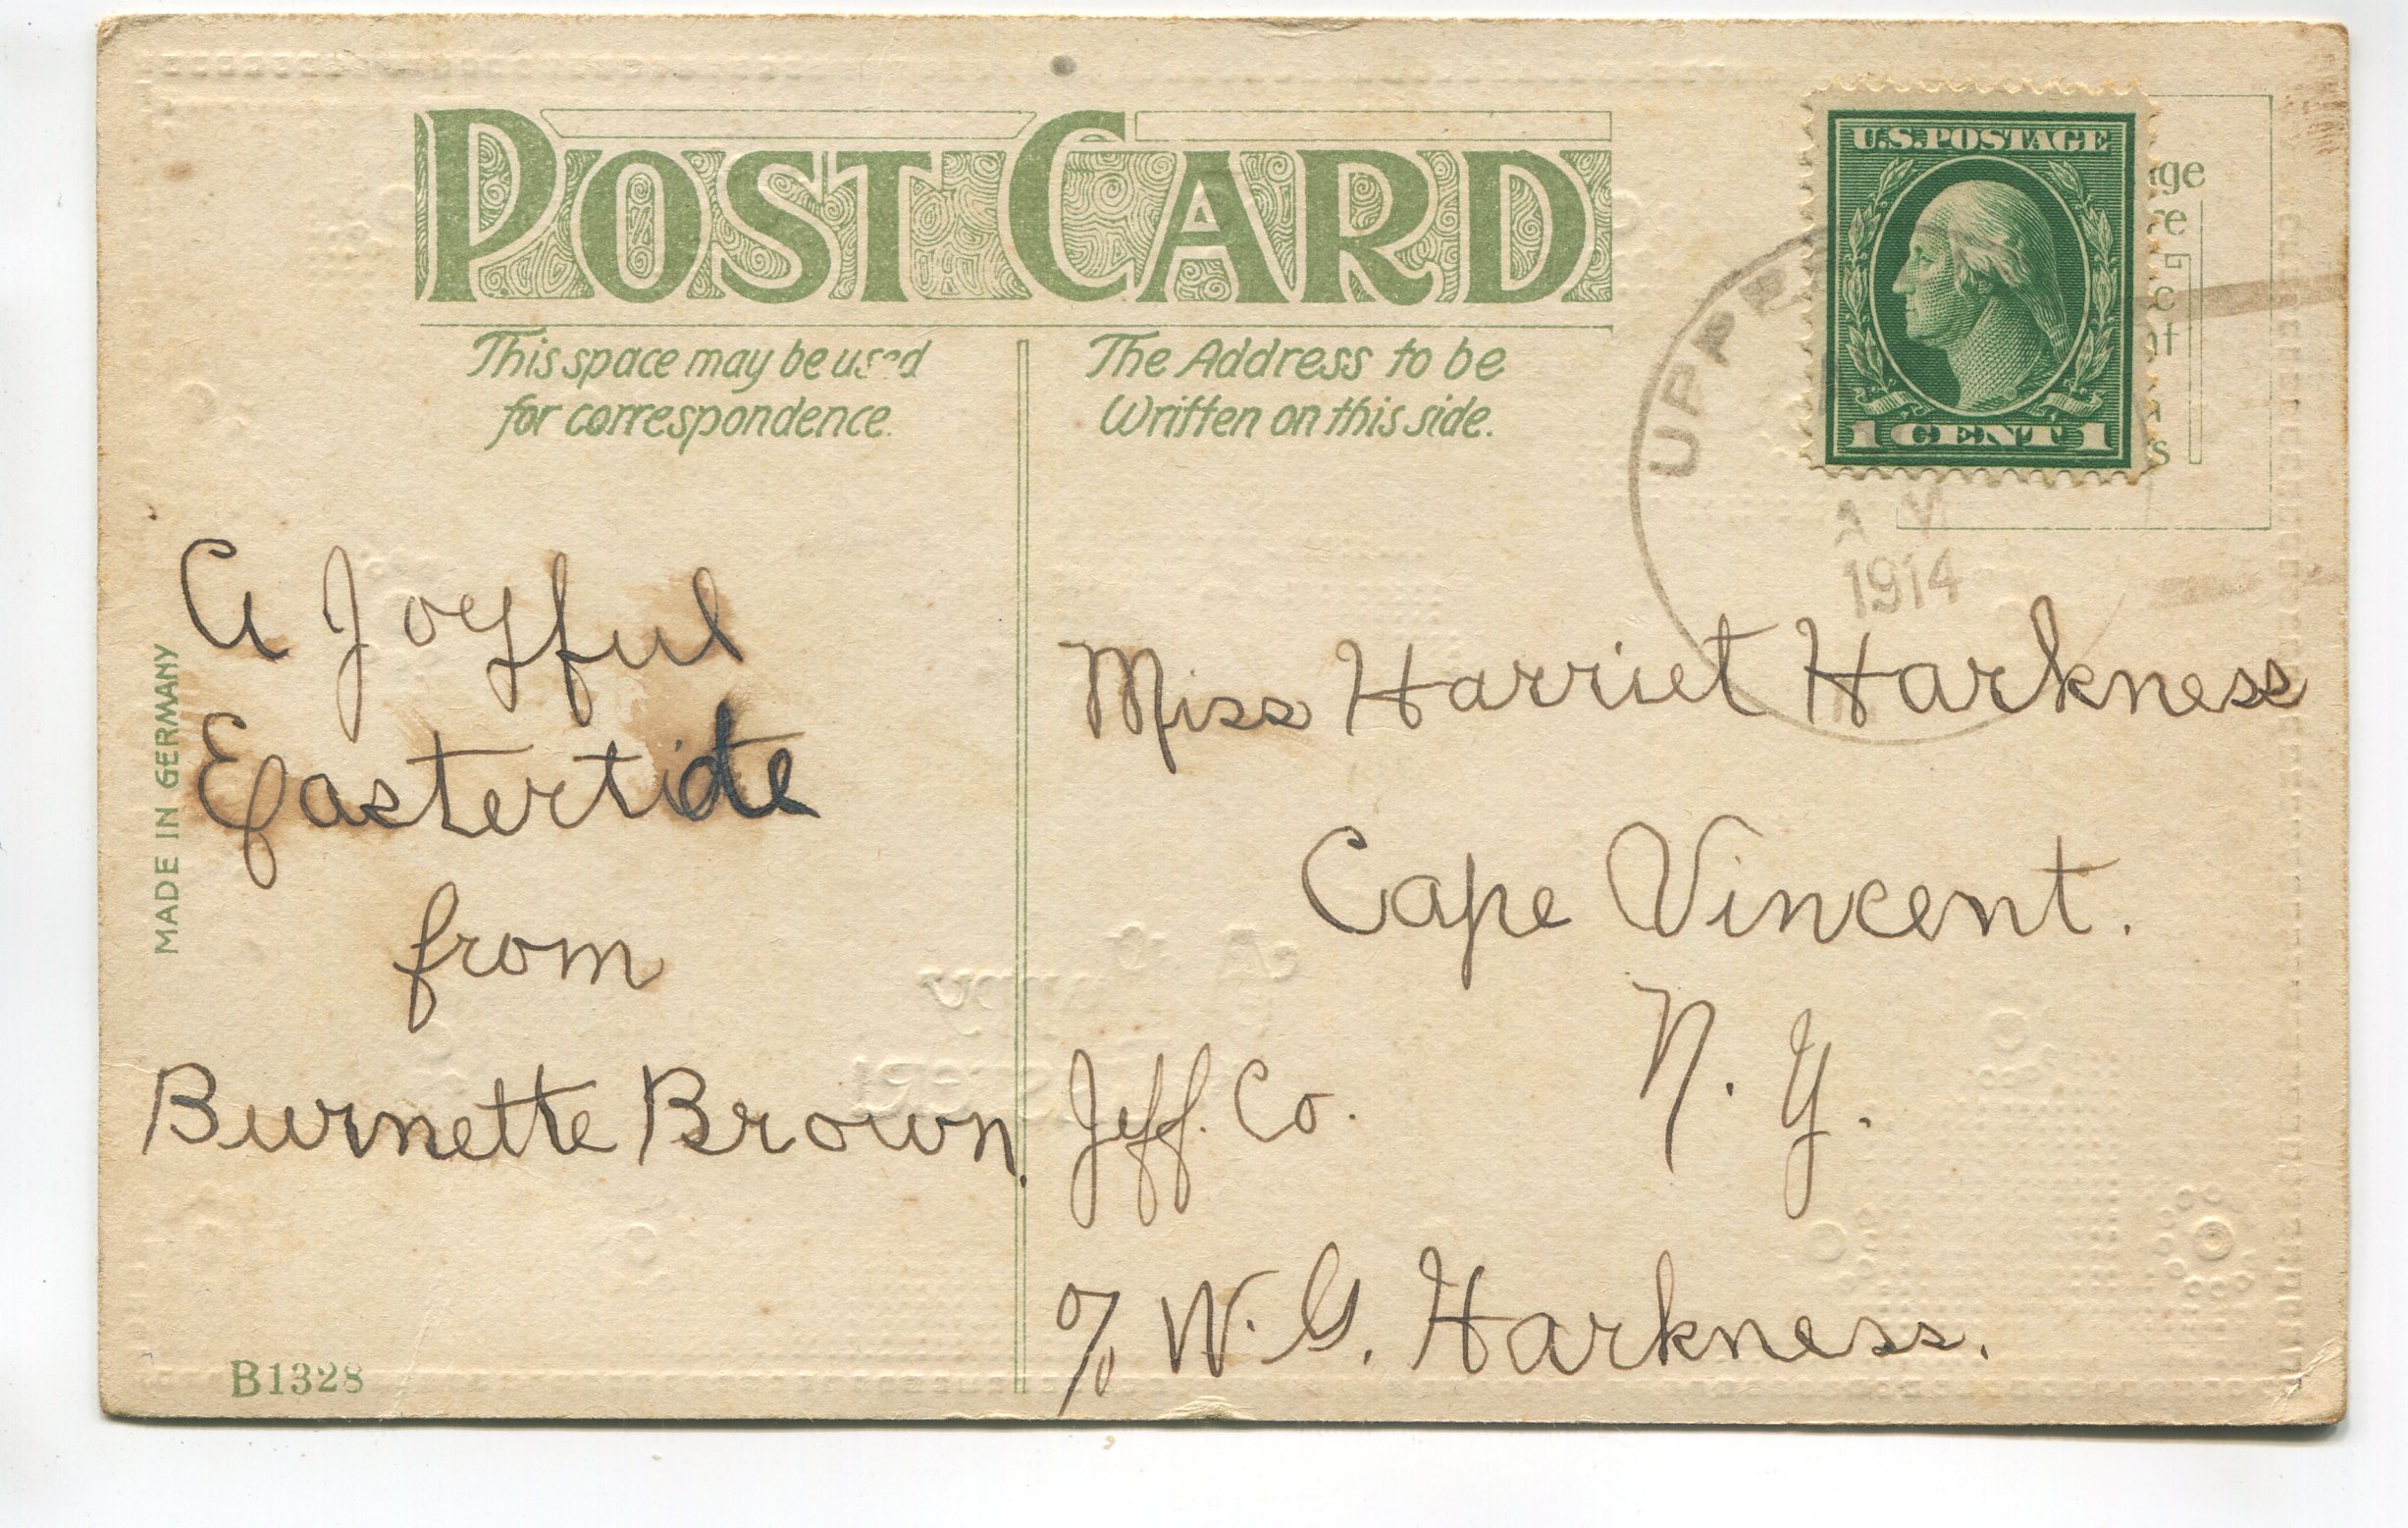 POST CARD
This space may be used
for correspondence.
The Address to be
Written on this side.
U.S. POSTAGE
1 CENT 1
1914
A Joyful
Eastertide
from
Burnette Brown.
Miss Harriet Harkness
Cape Vincent.
N. Y.
Jeff. Co.
c/o W. G. Harkness.
MADE IN GERMANY
B1328